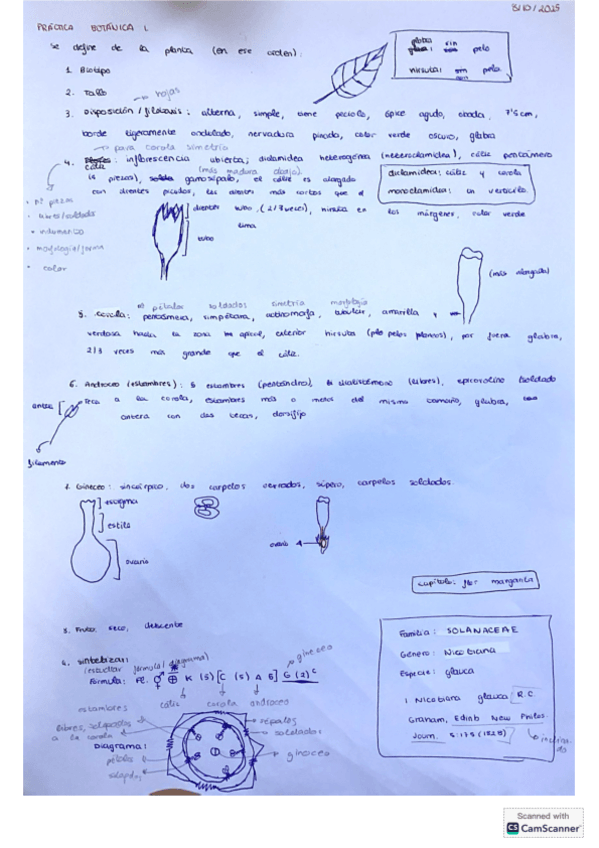 8/10/2025
PRÁCTICA BOTÁNICA 1
se define de la planta (en ese orden):
glabra: sin pelo
hirsuta: con pelo
1. Biotipo
2. Tallo
hojas
3. Disposición / filotaxis: alterna, simple, tiene peciolo, ápice agudo, obada, 7'5 cm,
borde ligeramente ondulado, nervadura pinada, color verde oscuro, glabra
para corola simetría
4. cáliz: inflorescencia abierta; diclamidea heterogénea (heteroclamidea), cáliz pentámero
(más madura abajo)
(5 piezas), gamosépalo, el cáliz es alargado
con dientes picudos, los dientes más cortos que el
tubo, (2/7 veces), hirsuta en los márgenes, color verde
lima
diclamidea: cáliz y corola
monoclamidea: un verticilo
nº piezas
libres/soldados
indumento
morfología/forma
color
dientes
tubo
(más alargada)
nº pétalos soldados simetría morfología
5. Corola: pentámera, simpétala, actinomorfa, tubular, amarilla y
verdosa hacia la zona apical, exterior hirsuta (pelos), por fuera glabra,
2/3 veces más grande que el cáliz.
6. Androceo (estambres): 5 estambres (pentandro), dialistémono (libres), epicorolino (soldado
a la corola, estambres más o menos del mismo tamaño, glabra,
antera con dos tecas, dorsifijo
antera
teca
filamento
7. Gineceo: sincárpico, dos carpelos cerrados, súpero, carpelos soldados.
estigma
estilo
ovario
ovario
capítulo: flor margarita
8. Fruto: seco, dehiscente
9. Sintetizar:
(estudiar fórmula/diagrama)
gineceo
Fórmula: Fl. ⚥ ⊕ K (5) [C (5) A 5] G (2) c
cáliz corola androceo
estambres
libres, soldados
a la corola
Diagrama:
pétalos
soldados
sépalos
soldados
gineceo
Familia: SOLANACEAE
Género: Nicotiana
Especie: glauca
1 Nicotiana glauca R.C.
Graham, Edinb New Philos.
Journ. 5:175 (1828)
Scanned with
CS CamScanner